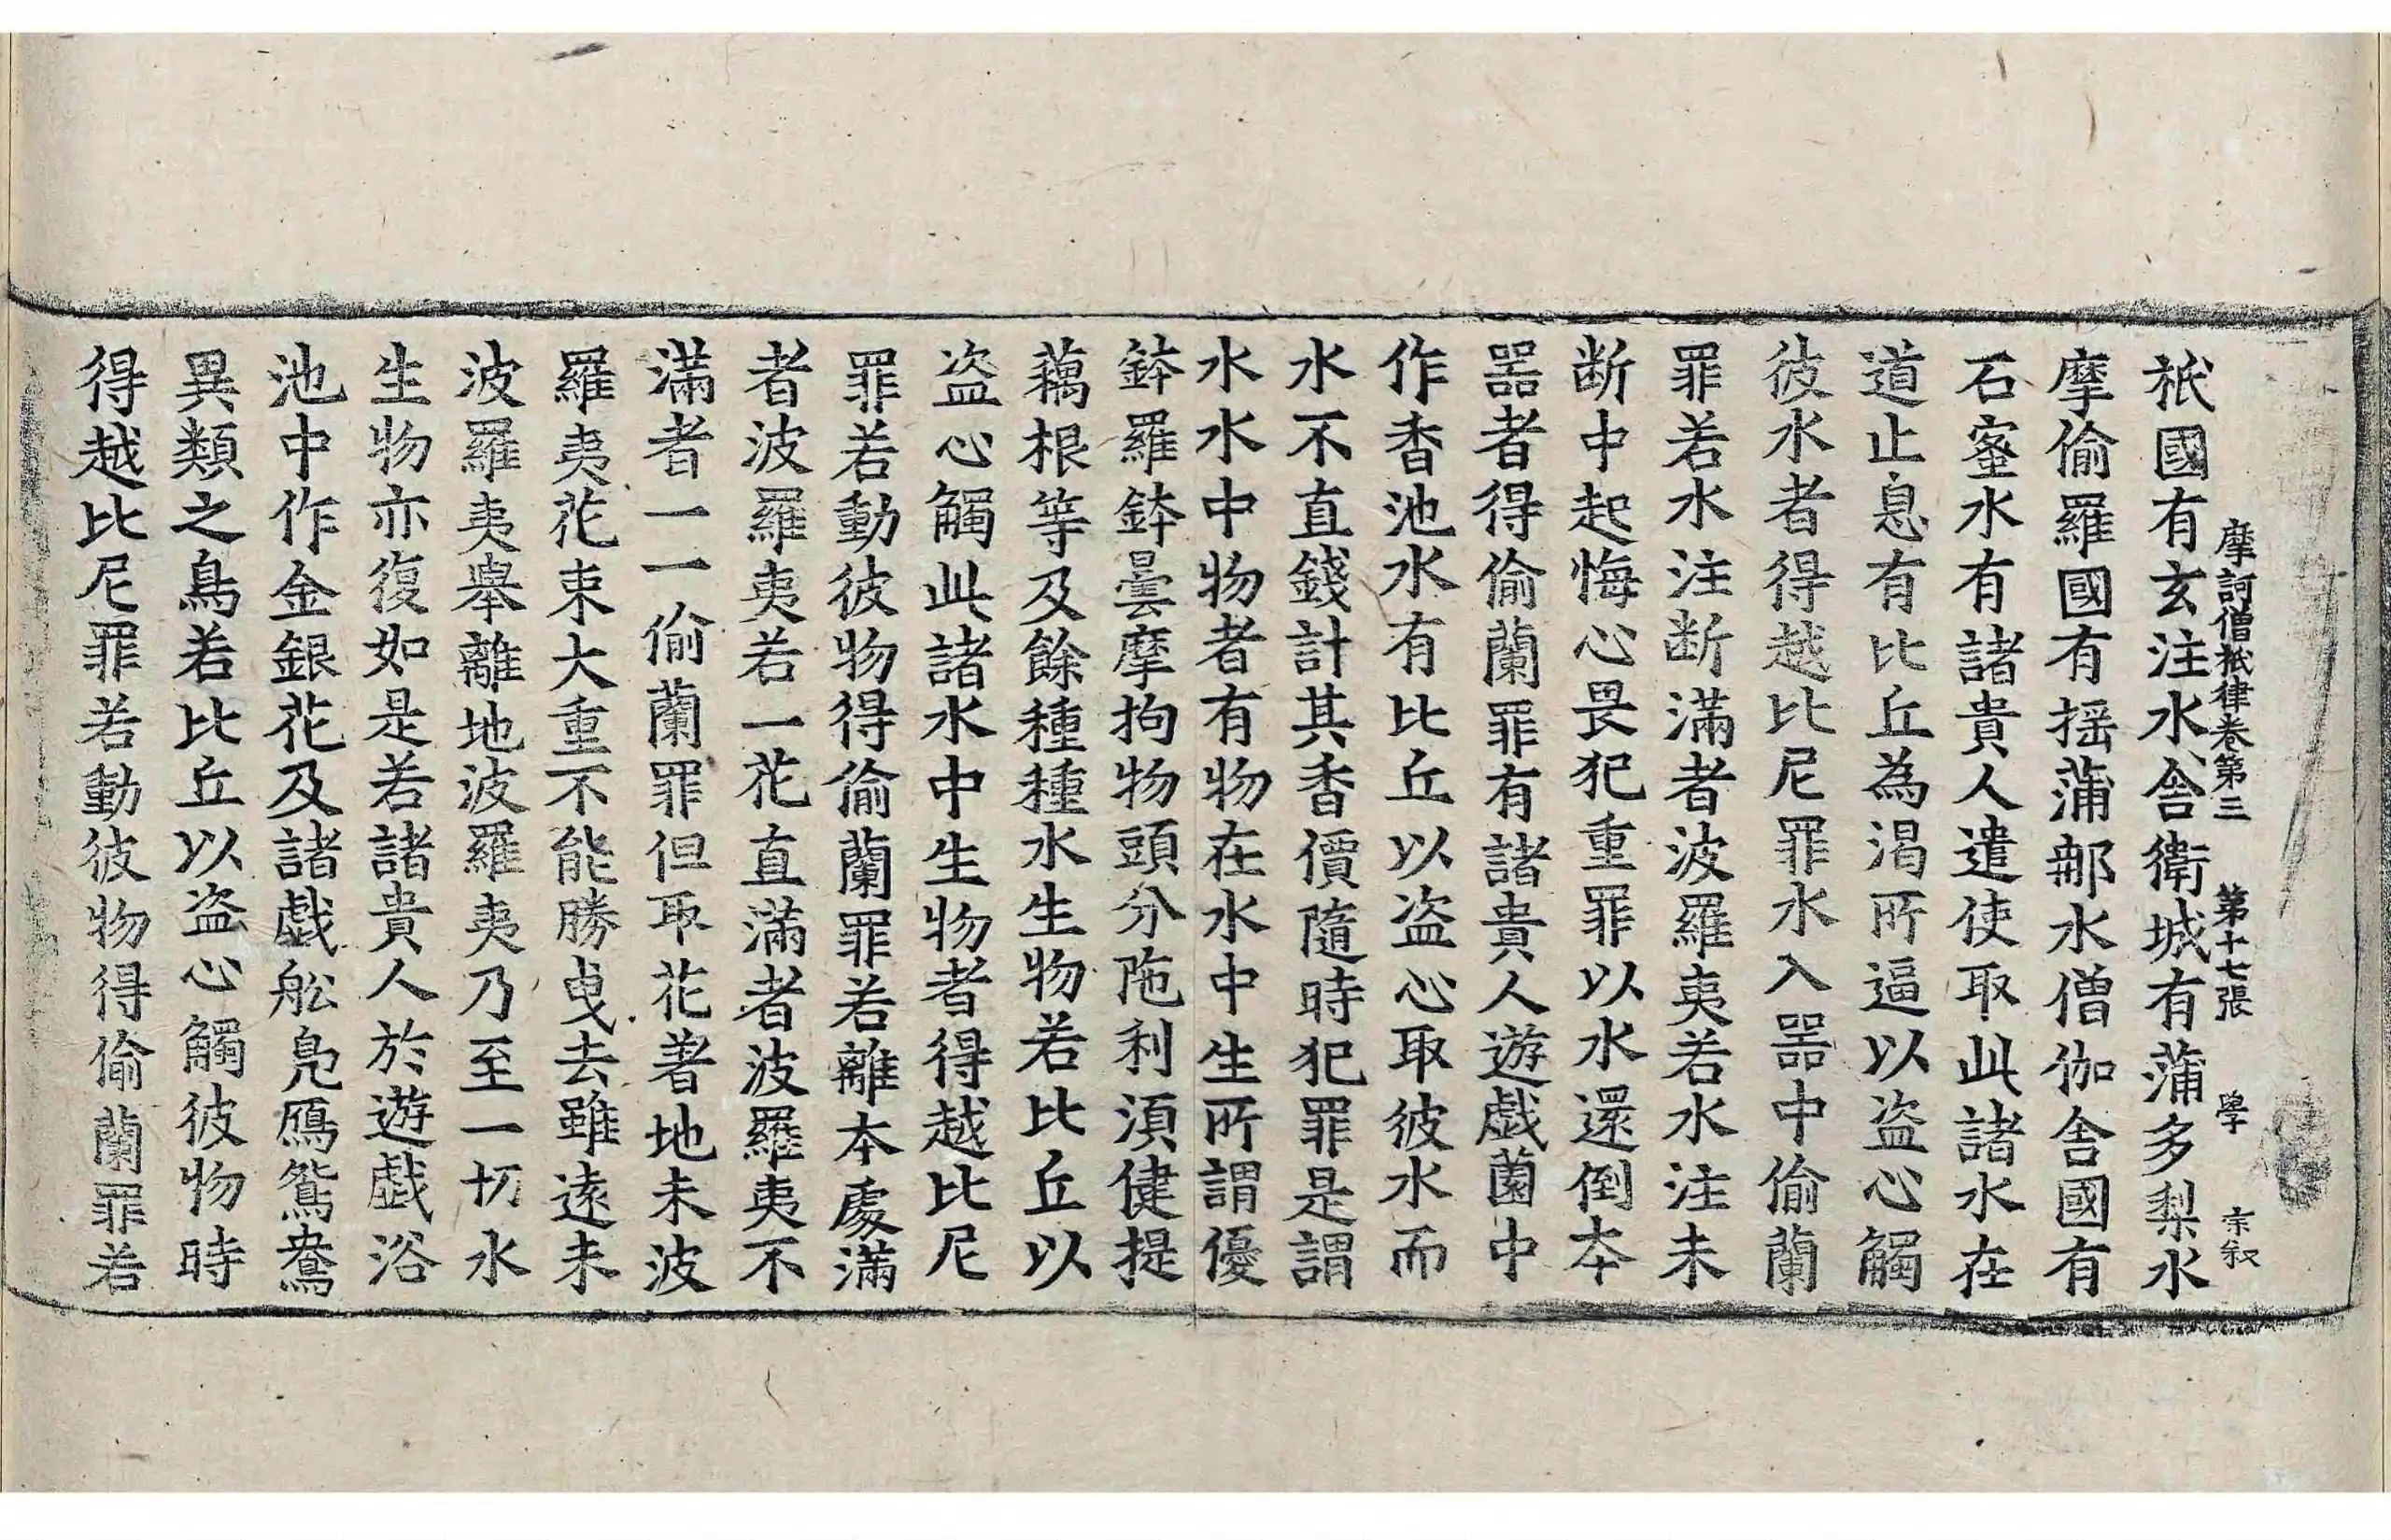 摩訶僧祇律卷第三 第十七張 學 宗叙
祇國有玄注水舎衛城有蒲多梨水
摩偷羅國有揺蒲郍水僧伽舍國有
石蜜水有諸貴人遣使取此諸水在
道止息有比丘為渴所逼以盗心觸
彼水者得越比尼罪水入器中偷蘭
罪若水注断滿者波羅夷若水注未
断中起悔心畏犯重罪以水還倒本
器者得偷蘭罪有諸貴人遊戯園中
作香池水有比丘以盗心取彼水而
水不直錢計其香價隨時犯罪是謂
水水中物者有物在水中生所謂優
鉢羅鉢曇摩拘物頭分陁利湏健提
藕根等及餘種種水生物若比丘以
盗心觸此諸水中生物者得越比尼
罪若動彼物得偷蘭罪若離本處滿
者波羅夷若一花直滿者波羅夷不
滿者一一偷蘭罪但取花著地未波
羅夷花束大重不能勝曳去雖遠未
波羅夷舉離地波羅夷乃至一切水
生物亦復如是若諸貴人於遊戯浴
池中作金銀花及諸戯舩鳧鴈鴛鴦
異類之鳥若比丘以盗心觸彼物時
得越比尼罪若動彼物得偷蘭罪若